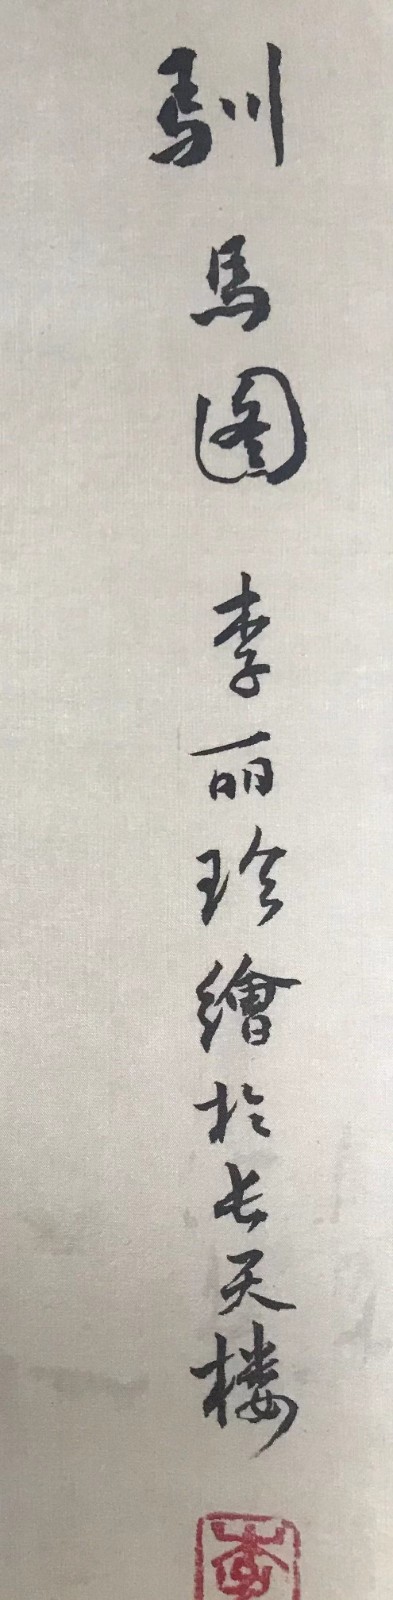 馴馬图李丽珍繪於长天楼